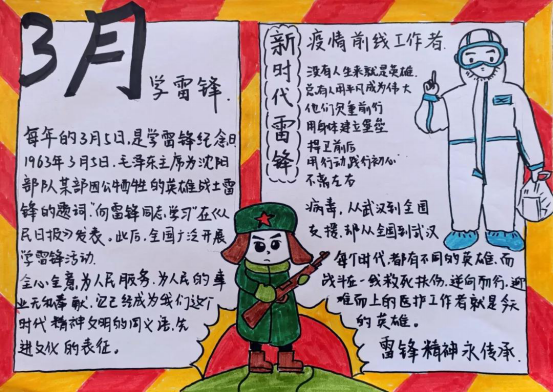 3月
学雷锋.
每年的3月5日,是学雷锋纪念日
1963年3月5日,毛泽东主席为沈阳
部队某部因公牺牲的英雄战士雷
锋的题词:"向雷锋同志学习"在《人
民日报》发表。此后,全国广泛开展
学雷锋活动.
全心全意为人民服务,为人民的事
业无私奉献,它已经成为我们这个
时代精神文明的同义语,先
进文化的表征。
新时代雷锋
疫情前线工作者.
没有人生来就是英雄.
总有人用平凡成为伟大
他们负重前行
用身体建立堡垒
捍卫前后
用行动践行初心
不离左右
病毒,从武汉到全国
支援,却从全国到武汉
每个时代,都有不同的英雄.而
战斗在一线救死扶伤,逆向而行,迎
难而上的医护工作者就是今天
的英雄。
雷锋精神永传承.